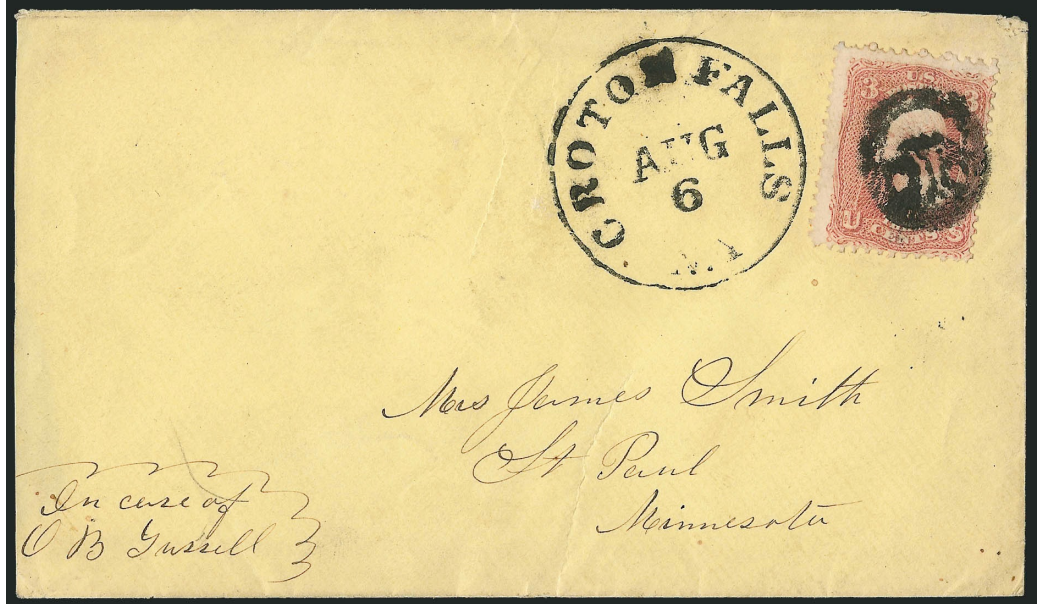 CROTON FALLS
AUG
6
N.Y
3 U.S. 3
U CENTS S
Mrs James Smith
St Paul
Minnesota
In care of
O B Turrell